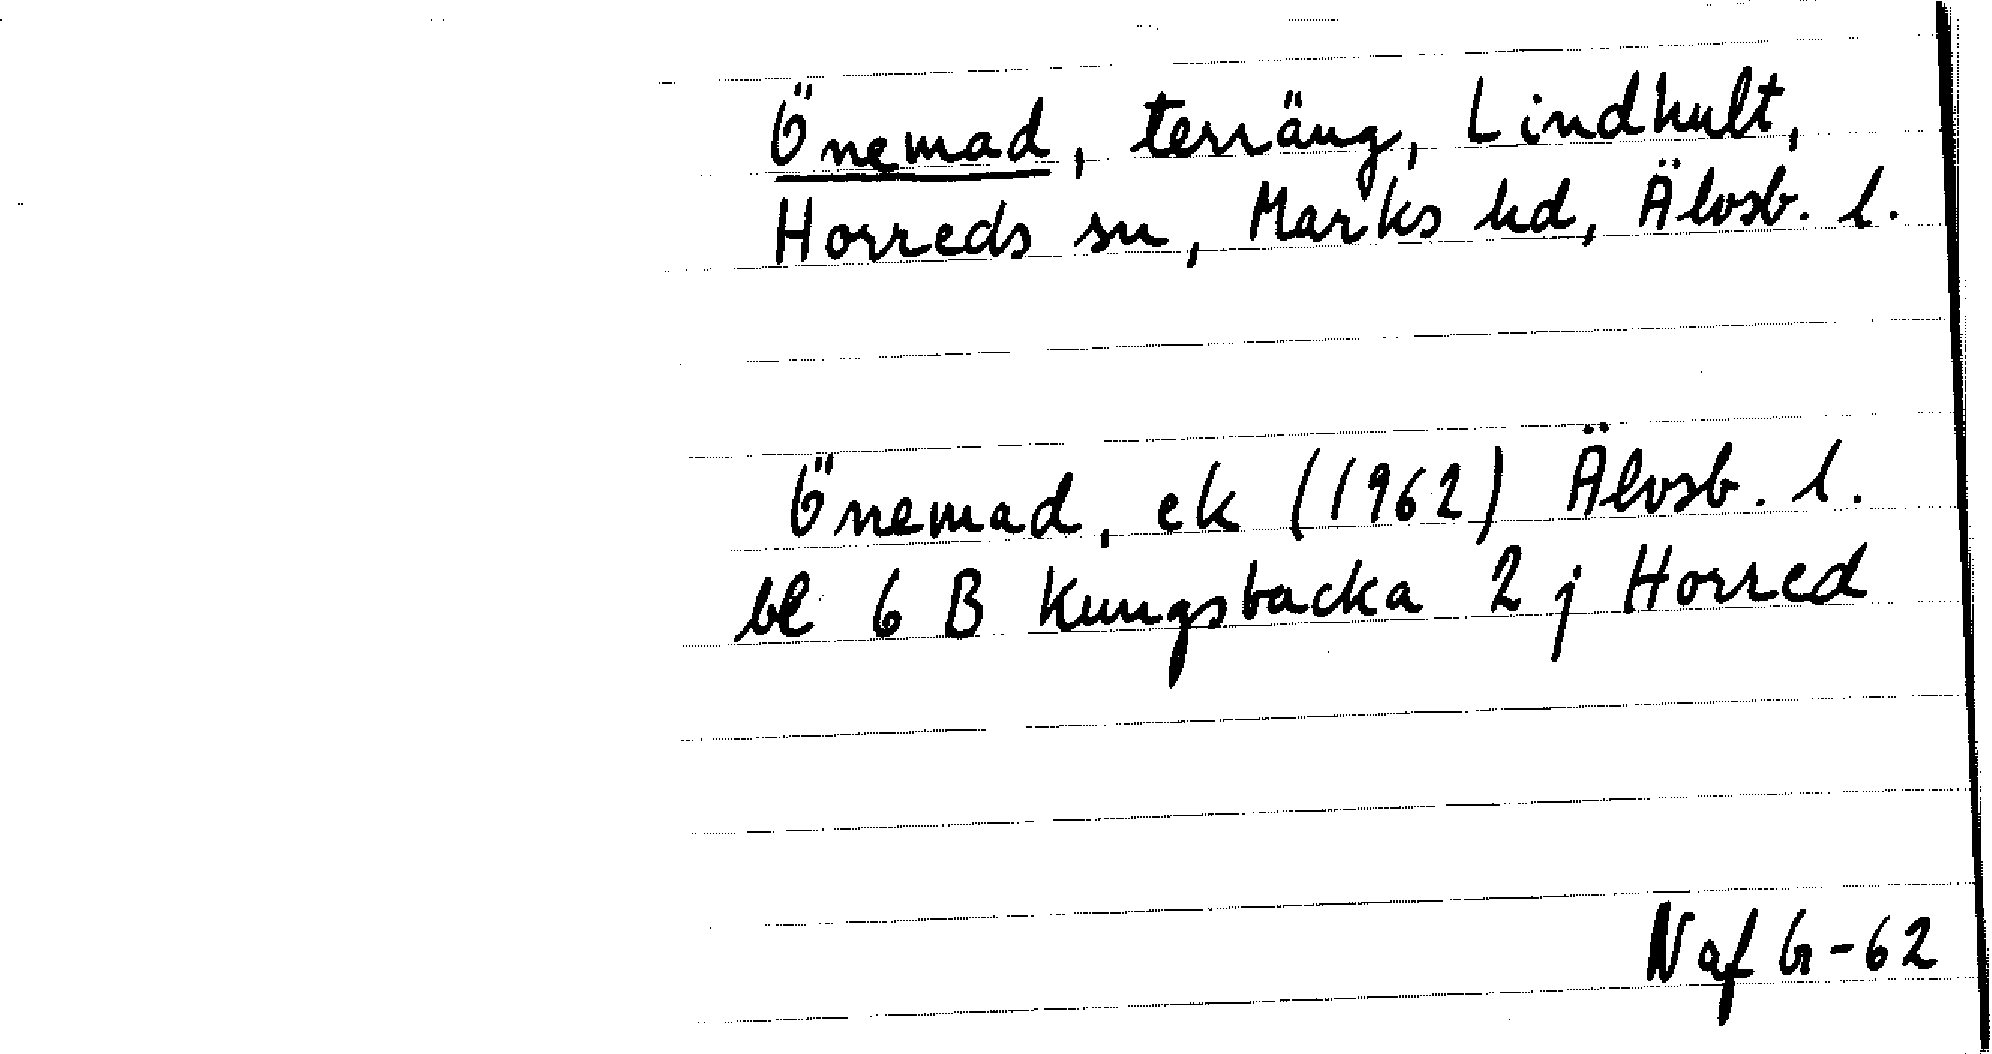 Önemad, terräng, Lindhult,
Horreds sn, Marks hd, Älvsb. l.
Önemad, ek (1962) Älvsb. l.
bl 6 B Kungsbacka 2 j Horred
Naf G-62